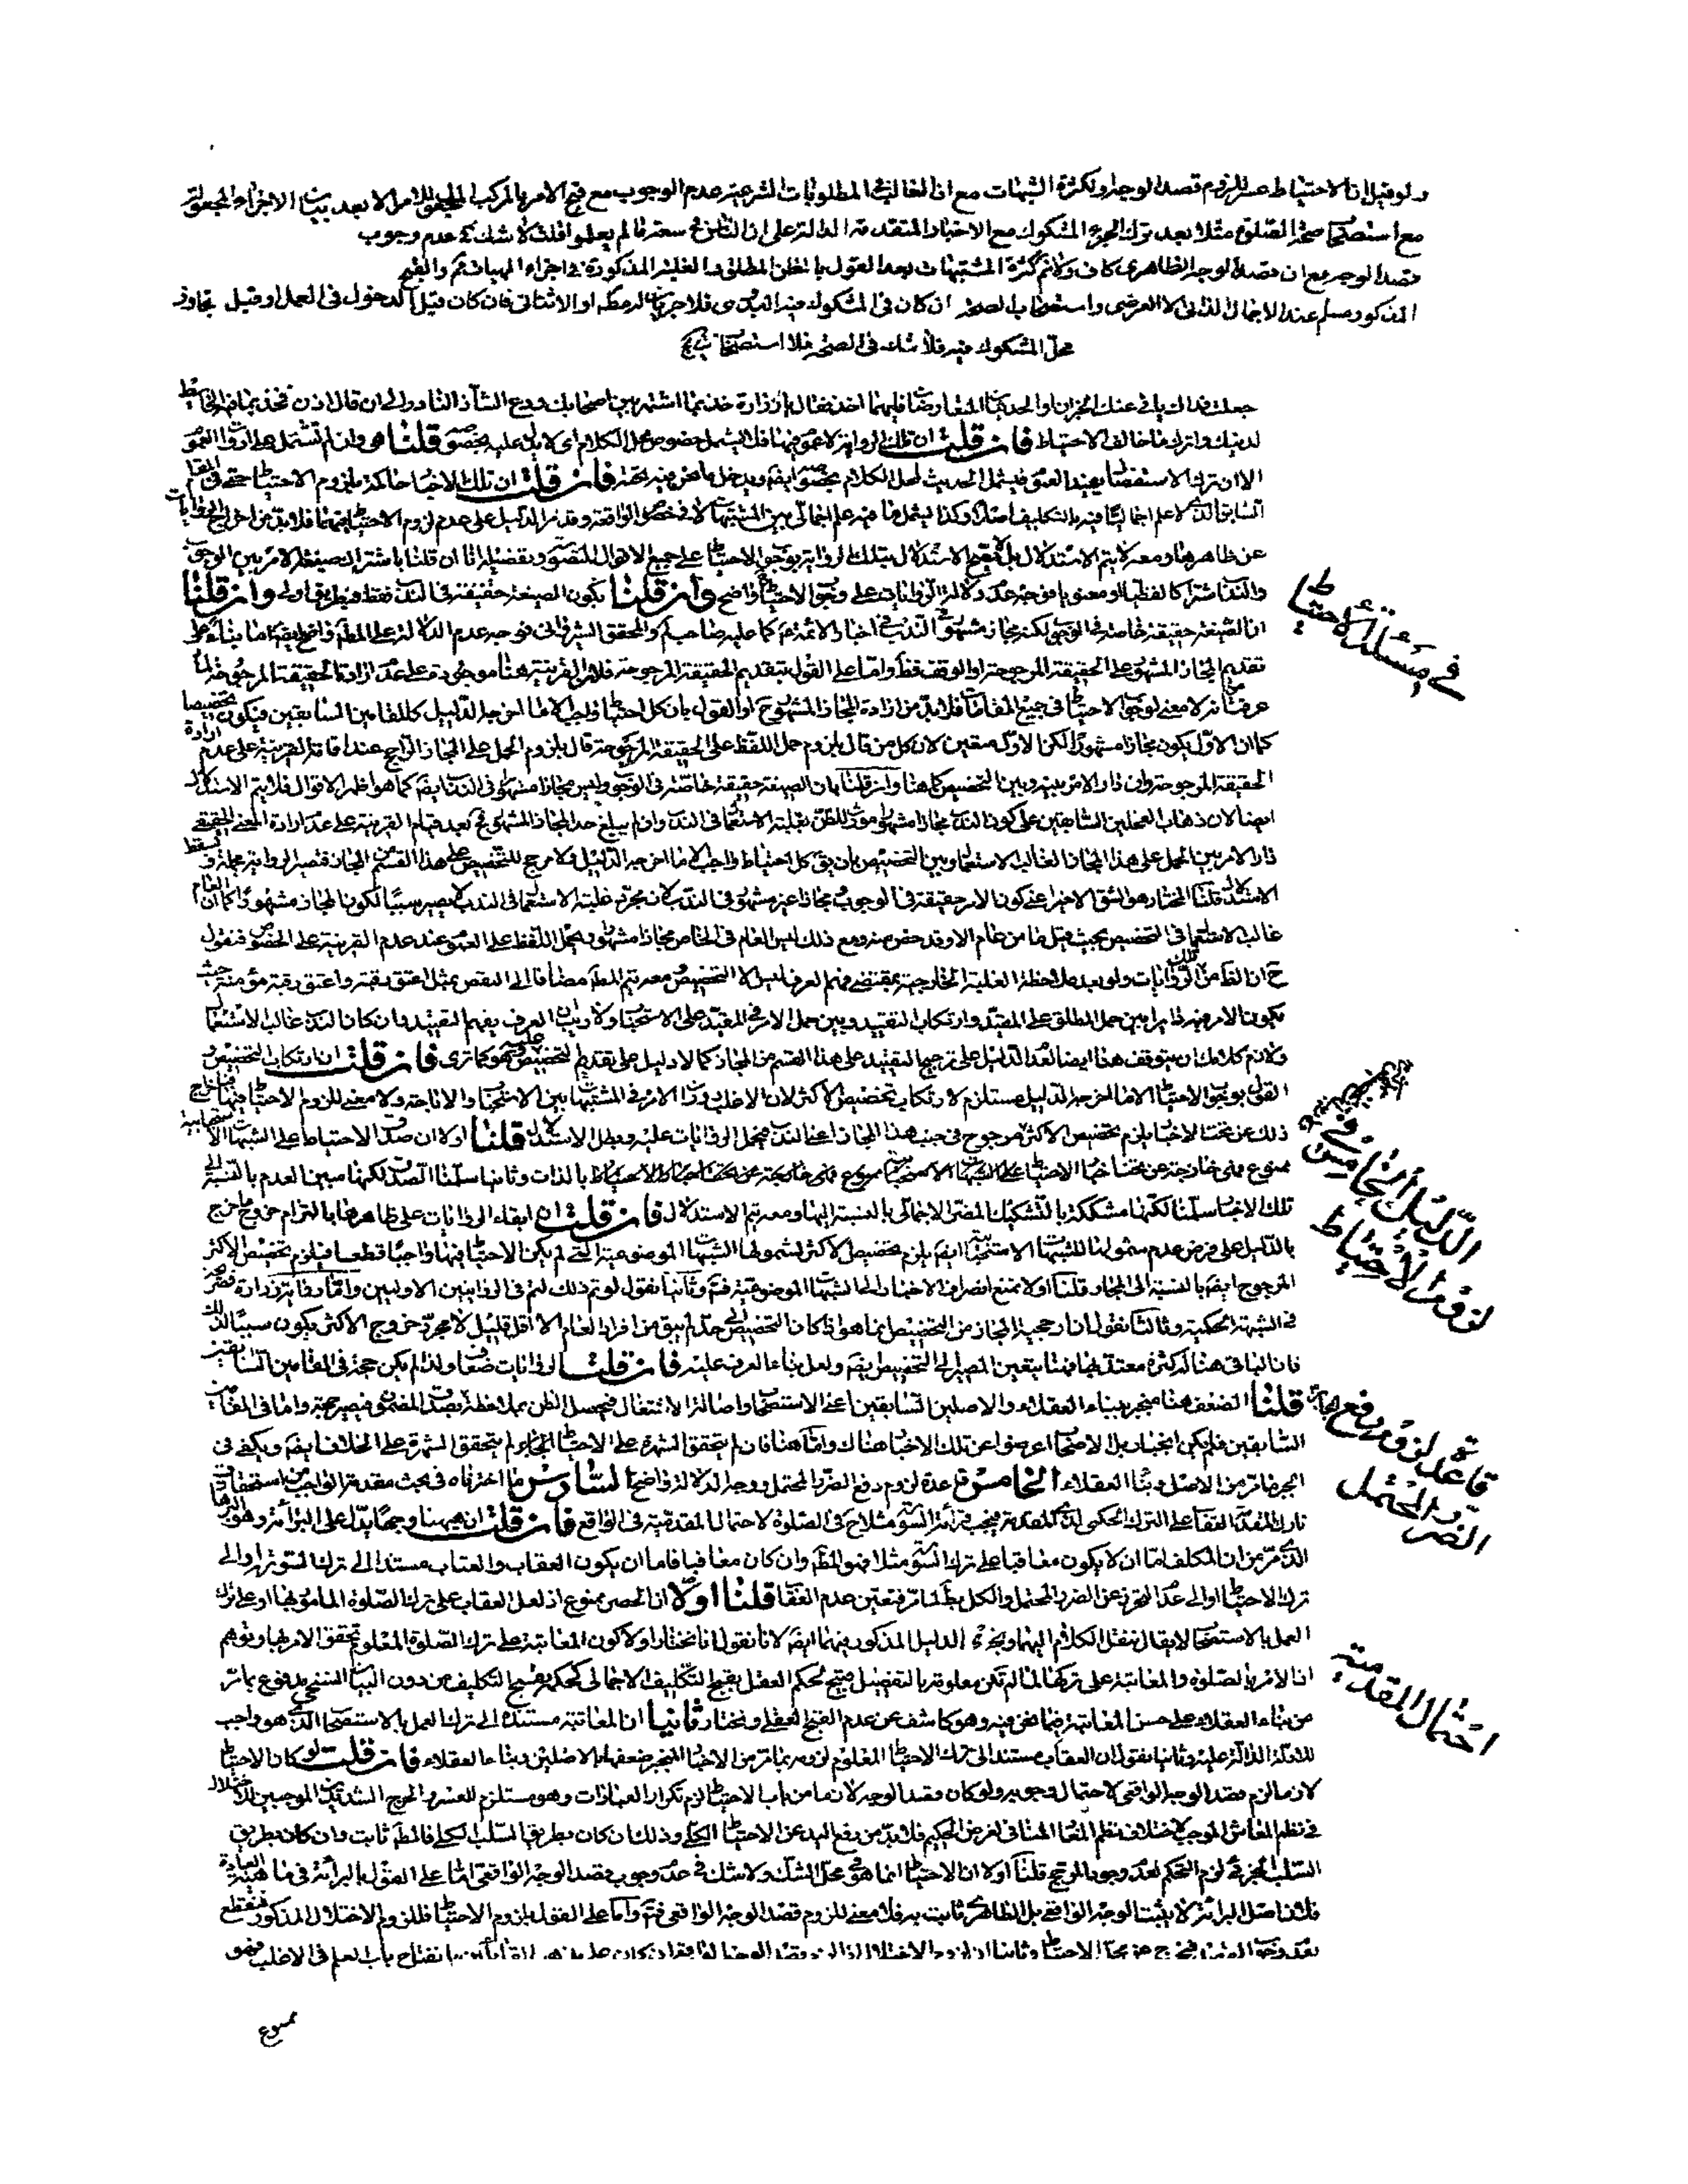 ولو قيل ان الاحتياط عسر للزوم قصد الوجه ولكثرة الشبهات مع ان الغالب في المطلوبات الشرعية عدم الوجوب مع قبح الامر بالمركب المجهول للامر الا بعد بيان الاجزاء المجعولة
مع استصحاب صحة الصلوة مثلا بعد ترك الجزء المشكوك مع الاخبار المتقدمة الدالة على ان الناس في سعة ما لم يعلموا قلت لا شك في عدم وجوب
قصد الوجه مع ان قصد الوجه الظاهرى كاف ولا نم كثرة المشتبهات بعد القول بالظن المطلق والغلبة المذكورة في اجزاء المهيات نم والقبح
المذكور مسلم عند الاجمال الذاتى لا العرضى واستصحاب الصحة ان كان في المشكوك فيه الدخول في العمل او قيل تجاوز
محل المشكوك فيه فلا شك فى الصحة فلا استصحاب
جعلت فداك ياتى عنك الخبران او الحديثان المتعارضان فبايهما اخذ فقال يا زرارة خذ بما اشتهر بين اصحابك ودع الشاذ النادر الى ان قال اذن فخذ بما فيه الحائطة
لدينك واترك ما خالف الاحتياط فان قلت ان تلك الرواية لا عموم فيها فلا يشمل خصوص محل الكلام اى لا يدل عليه بخصوصه قلنا هى وان لم تشتمل على ارادة العموم
الا ان ترك الاستفصال يفيد العموم فيشمل الحديث لمحل الكلام بخصوصه ايضا ويدخل ما نحن فيه تحته فان قلت ان تلك الاخبار حاكمة بلزوم الاحتياط حتى في المقام
السابق الذى لا علم اجماليا فيه بالتكليف اصلا وكذا يشمل ما فيه علم اجمالى بين المشتبهات لا في خصوص الواقعة وقد مر الدليل على عدم لزوم الاحتياط فيهما فلا بد من اخراج الروايات
عن ظاهرها ومعه لا يتم الاستدلال بل لا يصح الاستدلال بتلك الرواية بوجوب الاحتياط على جميع الاقوال المتصورة وتفصيله انا ان قلنا باشتراك صيغة الامر بين الوجوب
والندب اشتراكا لفظيا او معنويا فوجه عدم دلالة الروايات على وجوب الاحتياط واضح وان قلنا بكون الصيغة حقيقة في الندب فقط فبطريق اولى وان قلنا
ان الصيغة حقيقة خاصة في الوجوب لكنه مجاز مشهور في الندب في اخبار الائمة كما عليه صاحب لم والمحقق الشريف فوجه عدم الدلالة على المط واضح ايضا اما بناء على
تقديم المجاز المشهور على الحقيقة المرجوحة او الوقف فظ واما على القول بتقديم الحقيقة المرجوحة فلان القرينة هنا موجودة على عدم ارادة الحقيقة المرجوحة لما
عرفت من انه لا معنى لوجوب الاحتياط في جميع المقامات فلا بد من ارادة المجاز المشهور ح او القول بان كل احتياط واجب الا ما اخرجه الدليل كالمقامين السابقين فيكون تخصيصا
كما ان الاول يكون مجازا مشهورا لكن الاول متعين لان كل من قال بلزوم حمل اللفظ على الحقيقة المرجوحة قال بلزوم الحمل على المجاز الراجح عند اقامة القرينة على عدم ارادة
الحقيقة المرجوحة وان دار الامر بينه وبين التخصيص كما هنا وان قلنا بان الصيغة حقيقة خاصة في الوجوب وليس مجازا مشهورا في الندب ايضا كما هو اظهر الاقوال فلا يتم الاستدلال
ايضا لان ذهاب العدلين الشاهدين على كون الندب مجازا مشهورا مورث للظن بغلبة الاستعمال في الندب وان لم يبلغ حد المجاز المشهور ح بعد قيام القرينة على عدم ارادة المعنى الحقيقى
دار الامر بين الحمل على هذا المجاز الغالب الاستعمال وبين التخصيص بان يق كل احتياط واجب الا ما اخرجه الدليل ولا مرجح للتخصيص على هذا القسم من المجاز فتصير الرواية مجملة فيسقط
الاستدلال قلنا المختار هو الشق الاخير اعنى كون الامر حقيقة في الوجوب مجازا غير مشهور في الندب لان مجرد غلبة الاستعمال في الندب لا يصير سببا لكون المجاز مشهورا كما ان العام
غالب الاستعمال في التخصيص بحيث قيل ما من عام الا وقد خص ومع ذلك ليس العام في الخاص مجازا مشهورا بل يحمل اللفظ على العموم عند عدم القرينة على الخصوص فنقول
ح ان الظ من تلك الروايات ولو بعد ملاحظة الغلبة الخارجية بمقتضى فهم العرف ليس الا التخصيص معه يتم المط مضافا الى النقض بمثل اعتق رقبة واعتق رقبة مؤمنة حيث
يكون الامر فيه دايرا بين حمل المطلق على المقيد وارتكاب التقييد وبين حمل الامر في المقيد على الاستحباب ولا ريب ان العرف يفهم التقييد وان كان الندب غالب الاستعمال
ولا نم كلامك ان يتوقف هذا ايضا لعدم الدليل على ترجيح التقييد على هذا القسم من المجاز كما لا دليل على تقديم التخصيص عليه وهو كما ترى فان قلت ان ارتكاب التخصيص و
القول بوجوب الاحتياط الا ما اخرجه الدليل مستلزم لارتكاب تخصيص الاكثر لان الاغلب دوران الامر في المشتبهات بين الاستحباب والاباحة ولا معنى للزوم الاحتياط فيها فاخراج
ذلك عن تحت الاخبار يلزم تخصيص الاكثر مرجوح في جنب هذا المجاز اعنى الندب فيحمل الروايات عليه ويبطل الاستدلال قلنا اولا ان صدق الاحتياط على الشبهات الاستحبابية
ممنوع فهى خارجة عن تحت اخبار الاحتياط بالذات وثانيا سلمنا الصدق لكنها مبين العدم بالنسبة الى
تلك الاخبار سلمنا لكنها مشككة بالتشكيك المضر الاجمالى بالنسبة اليها ومعه يتم الاستدلال فان قلت ان ابقاء الروايات على ظاهرها بالتزام خروج ما خرج
بالدليل على فرض عدم شمولها للشبهات الاستحبابية ايضا يلزم تخصيص الاكثر لشمولها الشبهات الموضوعية التى لم يكن الاحتياط فيها واجبا قطعا فيلزم تخصيص الاكثر
المرجوح ايضا بالنسبة الى المجاز قلنا اولا نمنع انصراف الاخبار الى الشبهات الموضوعية فتم وثانيا نقول لو تم ذلك لتم في الروايتين الاوليين واما رواية زرارة فصريحة
في الشبهة الحكمية وثالثا نقول ان ارجحية المجاز من التخصيص انما هو اذا كان التخصيص الى حد لم يبق من افراد العام الا اقل قليل لا مجرد خروج الاكثر يكون سببا لذلك
فان الباقى هنا له كثرة معتد بها فهنا يتعين المصير الى التخصيص ايضا ولعل بناء العرف عليه فان قلت الروايات ضعاف ولذا لم يكن حجة في المقامين السابقين
قلنا الضعف هنا منجبر ببناء العقلاء والاصلين السابقين اعنى الاستصحاب واصالة الاشتغال فيحصل الظن بملاحظة بصدق المضمون فيصير حجة واما في المقامين
السابقين فلم يكن انجبار بل الاصحاب اعرضوا عن تلك الاخبار هناك واما هنا فان لم يتحقق الشهرة على الاحتياط لم يتحقق الشهرة على الخلاف ايضا ويكفى في
الجبر ما مر من الاصل وبناء العقلاء الخامس قاعدة لزوم دفع الضرر المحتمل ووجه الدلالة واضح السادس ما اخترناه في بحث مقدمة الواجب من استحقاق
تارك المقدمة العقاب على الترك الحكمى لذى المقدمة فيجب قرائة السورة مثلا ح في الصلوة لاحتمال المقدمية في الواقع فان قلت ان ههنا وجها يدل على البرائة وهو البرهان
الذى مر من ان المكلف اما ان لا يكون معاقبا على ترك السورة مثلا فهو المط وان كان معاقبا فاما ان يكون العقاب والعتاب مستندا الى ترك السورة او الى
ترك الاحتياط او الى عدم التحرز عن الضرر المحتمل والكل بط لما مر فتعين عدم العقاب قلنا اولا ان الحصر ممنوع اذ لعل العقاب على ترك الصلوة المامور بها او على ترك
العمل بالاستصحاب لا يقال ننقل الكلام اليهما ويجرى الدليل المذكور فيهما ايضا لانا نقول انا نختار اولا كون المعاقبة على ترك الصلوة المعلوم تحقق الامر بها وتوهم
ان الامر بالصلوة والمعاقبة على تركها لما لم تكن معلومة بالتفصيل قبيح لحكم العقل بقبح التكليف الاجمالى كحكمه بقبح التكليف من دون البيان مدفوع بما مر
من بناء العقلاء على حسن المعاقبة فيما نحن فيه وهو كاشف عن عدم القبح العقلى ونختار ثانيا ان المعاقبة مستندة الى ترك العمل بالاستصحاب الذى هو واجب
للادلة الدالة عليه وثانيا نقول ان العقاب مستند الى ترك الاحتياط المعلوم لزومه بما مر من الاخبار المنجبر ضعفها بالاصلين وبناء العقلاء فان قلت لو كان الاحتياط
لازما لزم قصد الوجه الواقعى لاحتمال وجوبه ولو كان قصد الوجه لازما من باب الاحتياط لزم تكرار العبادات وهو مستلزم للعسر والحرج الشديدين الموجبين لاختلال
في نظم المعاش الموجب لاختلاف نظم المعاد المنافى لغرض الحكيم فلا بد من رفع اليد عن الاحتياط الكلى وذلك ان كان بطريق السلب الكلى فالمط ثابت وان كان بطريق
السلب الجزئى لزم التحكم لعدم وجود المرجح قلنا اولا ان الاحتياط انما هو في محل الشك ولا شك في عدم وجوب قصد الوجه الواقعى اما على القول بالبرائة في ماهية العبادة
فلان اصل البرائة لا يثبت الوجه الواقعى بل الظاهرى ثابت به فلا معنى للزوم قصد الوجه الواقعى فتم واما على القول بلزوم الاحتياط فللزوم الاختلال المذكور فنقطع
انفتاح باب العلم في الاغلب فهو
ممنوع
في مسئلة الاحتياط
الدليل الخامس في
لزوم الاحتياط
قاعدة لزوم دفع
الضرر المحتمل
احتمال المقدمية